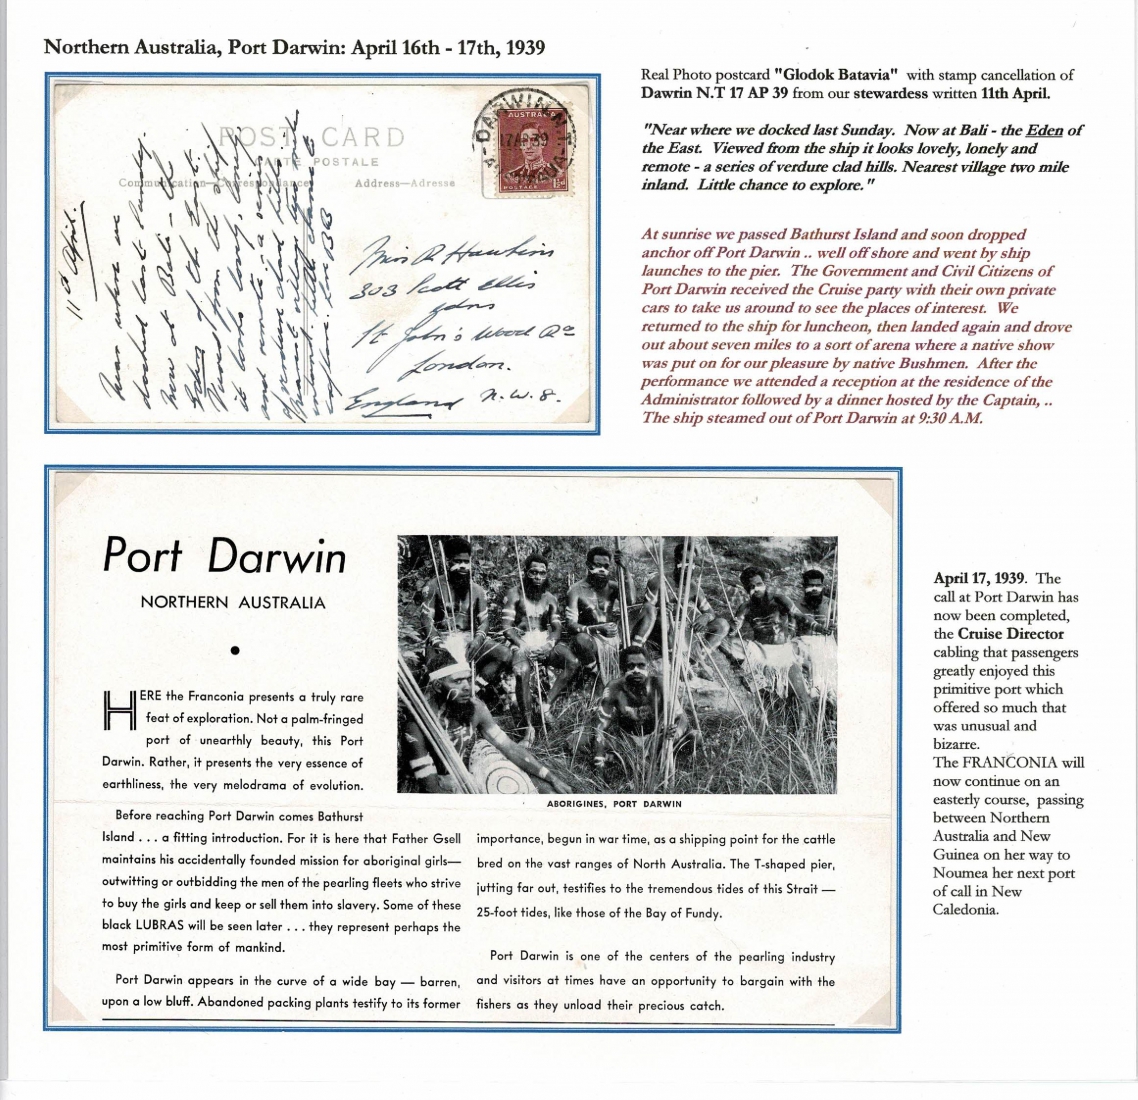 Northern Australia, Port Darwin: April 16th - 17th, 1939
POST CARD
CARTE POSTALE
Communication—Correspondance
Address—Adresse
DARWIN N.T
17 AP 39
AUSTRALIA
AUSTRALIA
POSTAGE
1½d
11th April.
Near where we
docked last Sunday.
Now at Bali - the
Eden of the East.
Viewed from the ship
it looks lovely, lonely
and remote - a series
of verdure clad hills.
Nearest village two mile
inland. Little chance
to explore.
Miss R Hawkins
303 Scott Ellis
Gdns
St John's Wood Rd
London.
England N.W.8.
Real Photo postcard "Glodok Batavia" with stamp cancellation of
Dawrin N.T 17 AP 39 from our stewardess written 11th April.
"Near where we docked last Sunday. Now at Bali - the Eden of
the East. Viewed from the ship it looks lovely, lonely and
remote - a series of verdure clad hills. Nearest village two mile
inland. Little chance to explore."
At sunrise we passed Bathurst Island and soon dropped
anchor off Port Darwin .. well off shore and went by ship
launches to the pier. The Government and Civil Citizens of
Port Darwin received the Cruise party with their own private
cars to take us around to see the places of interest. We
returned to the ship for luncheon, then landed again and drove
out about seven miles to a sort of arena where a native show
was put on for our pleasure by native Bushmen. After the
performance we attended a reception at the residence of the
Administrator followed by a dinner hosted by the Captain, ..
The ship steamed out of Port Darwin at 9:30 A.M.
Port Darwin
NORTHERN AUSTRALIA
HERE the Franconia presents a truly rare
feat of exploration. Not a palm-fringed
port of unearthly beauty, this Port
Darwin. Rather, it presents the very essence of
earthliness, the very melodrama of evolution.
Before reaching Port Darwin comes Bathurst
Island . . . a fitting introduction. For it is here that Father Gsell
maintains his accidentally founded mission for aboriginal girls—
outwitting or outbidding the men of the pearling fleets who strive
to buy the girls and keep or sell them into slavery. Some of these
black LUBRAS will be seen later . . . they represent perhaps the
most primitive form of mankind.
Port Darwin appears in the curve of a wide bay — barren,
upon a low bluff. Abandoned packing plants testify to its former
ABORIGINES, PORT DARWIN
importance, begun in war time, as a shipping point for the cattle
bred on the vast ranges of North Australia. The T-shaped pier,
jutting far out, testifies to the tremendous tides of this Strait —
25-foot tides, like those of the Bay of Fundy.
Port Darwin is one of the centers of the pearling industry
and visitors at times have an opportunity to bargain with the
fishers as they unload their precious catch.
April 17, 1939. The
call at Port Darwin has
now been completed,
the Cruise Director
cabling that passengers
greatly enjoyed this
primitive port which
offered so much that
was unusual and
bizarre.
The FRANCONIA will
now continue on an
easterly course, passing
between Northern
Australia and New
Guinea on her way to
Noumea her next port
of call in New
Caledonia.